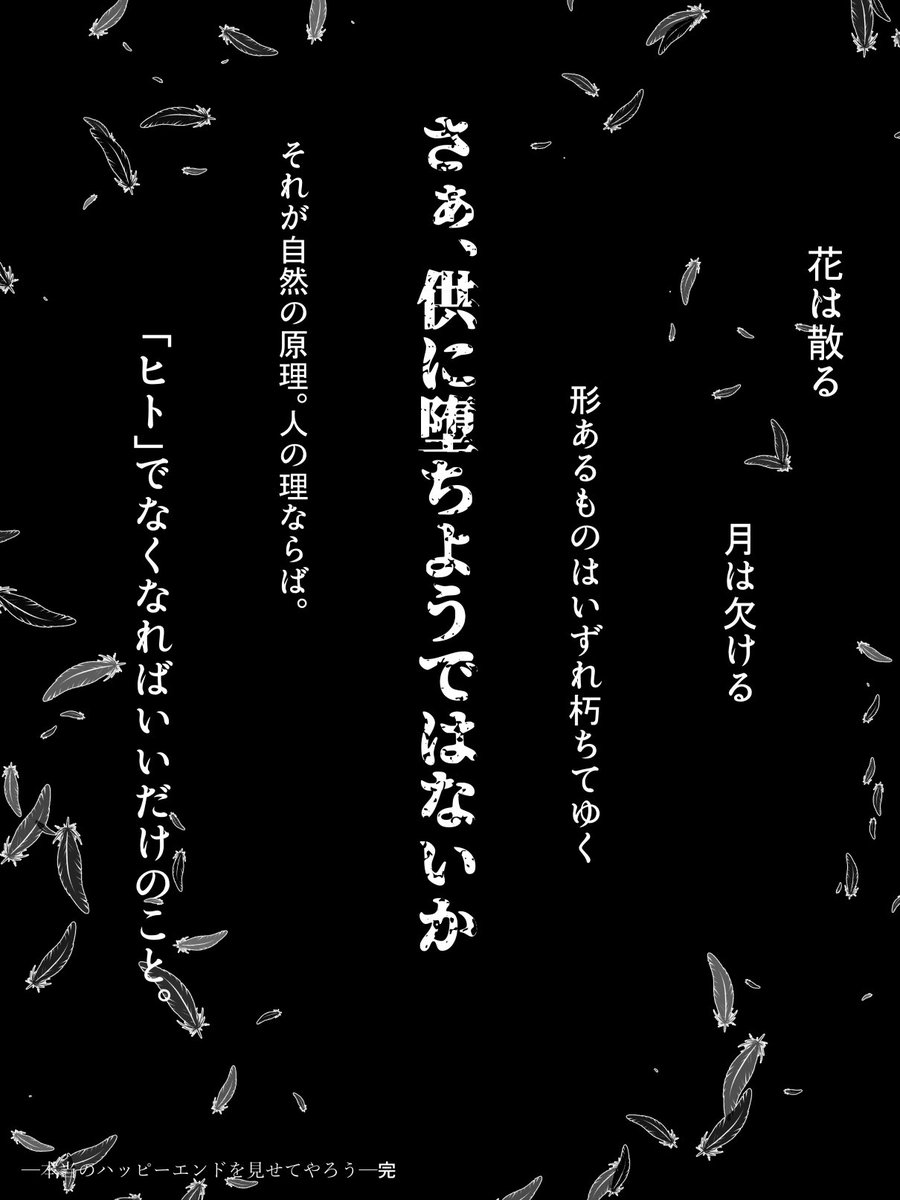 花は散る
月は欠ける
形あるものはいずれ朽ちてゆく
さぁ、供に堕ちようではないか
それが自然の原理。人の理ならば。
「ヒト」でなくなればいいだけのこと。
―本当のハッピーエンドを見せてやろう―完